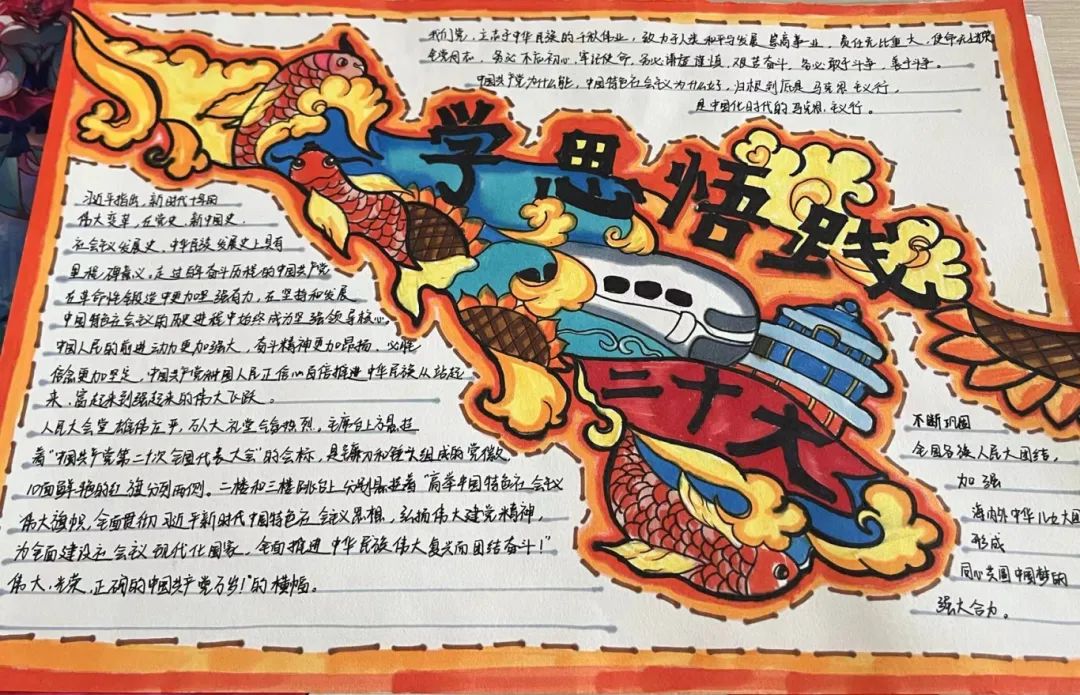 我们党立志于中华民族的千秋伟业，致力于人类和平与发展崇高事业，责任无比重大，使命无上
全党同志，务必不忘初心、牢记使命，务必谦虚谨慎、艰苦奋斗，务必敢于斗争、善于斗争。
中国共产党为什么能，中国特色社会主义为什么好，归根到底是马克思主义行，
是中国化时代的马克思主义行。
学思悟践
二十大
习近平指出，新时代十年的
伟大变革，在党史、新中国史、
社会主义发展史、中华民族发展史上具有
里程碑意义。走过百年奋斗历程的中国共产党
在革命性锻造中更加坚强有力，在坚持和发展
中国特色社会主义的历史进程中始终成为坚强领导核心。
中国人民的前进动力更加强大，奋斗精神更加昂扬、必胜
信念更加坚定，中国共产党和中国人民正信心百倍推进中华民族从站起
来、富起来到强起来的伟大飞跃。
人民大会堂雄伟庄严，万人大礼堂气氛热烈。主席台上方悬挂
着“中国共产党第二十次全国代表大会”的会标，是镰刀和锤头组成的党徽，
10面鲜艳的红旗分列两侧。二楼和三楼眺台上分别悬挂着“高举中国特色社会主义
伟大旗帜，全面贯彻习近平新时代中国特色社会主义思想，弘扬伟大建党精神，
为全面建设社会主义现代化国家、全面推进中华民族伟大复兴而团结奋斗！”
伟大、光荣、正确的中国共产党万岁！”的横幅。
不断巩固
全国各族人民大团结，
加强
海内外中华儿女大团
形成
同心共圆中国梦的
强大合力。